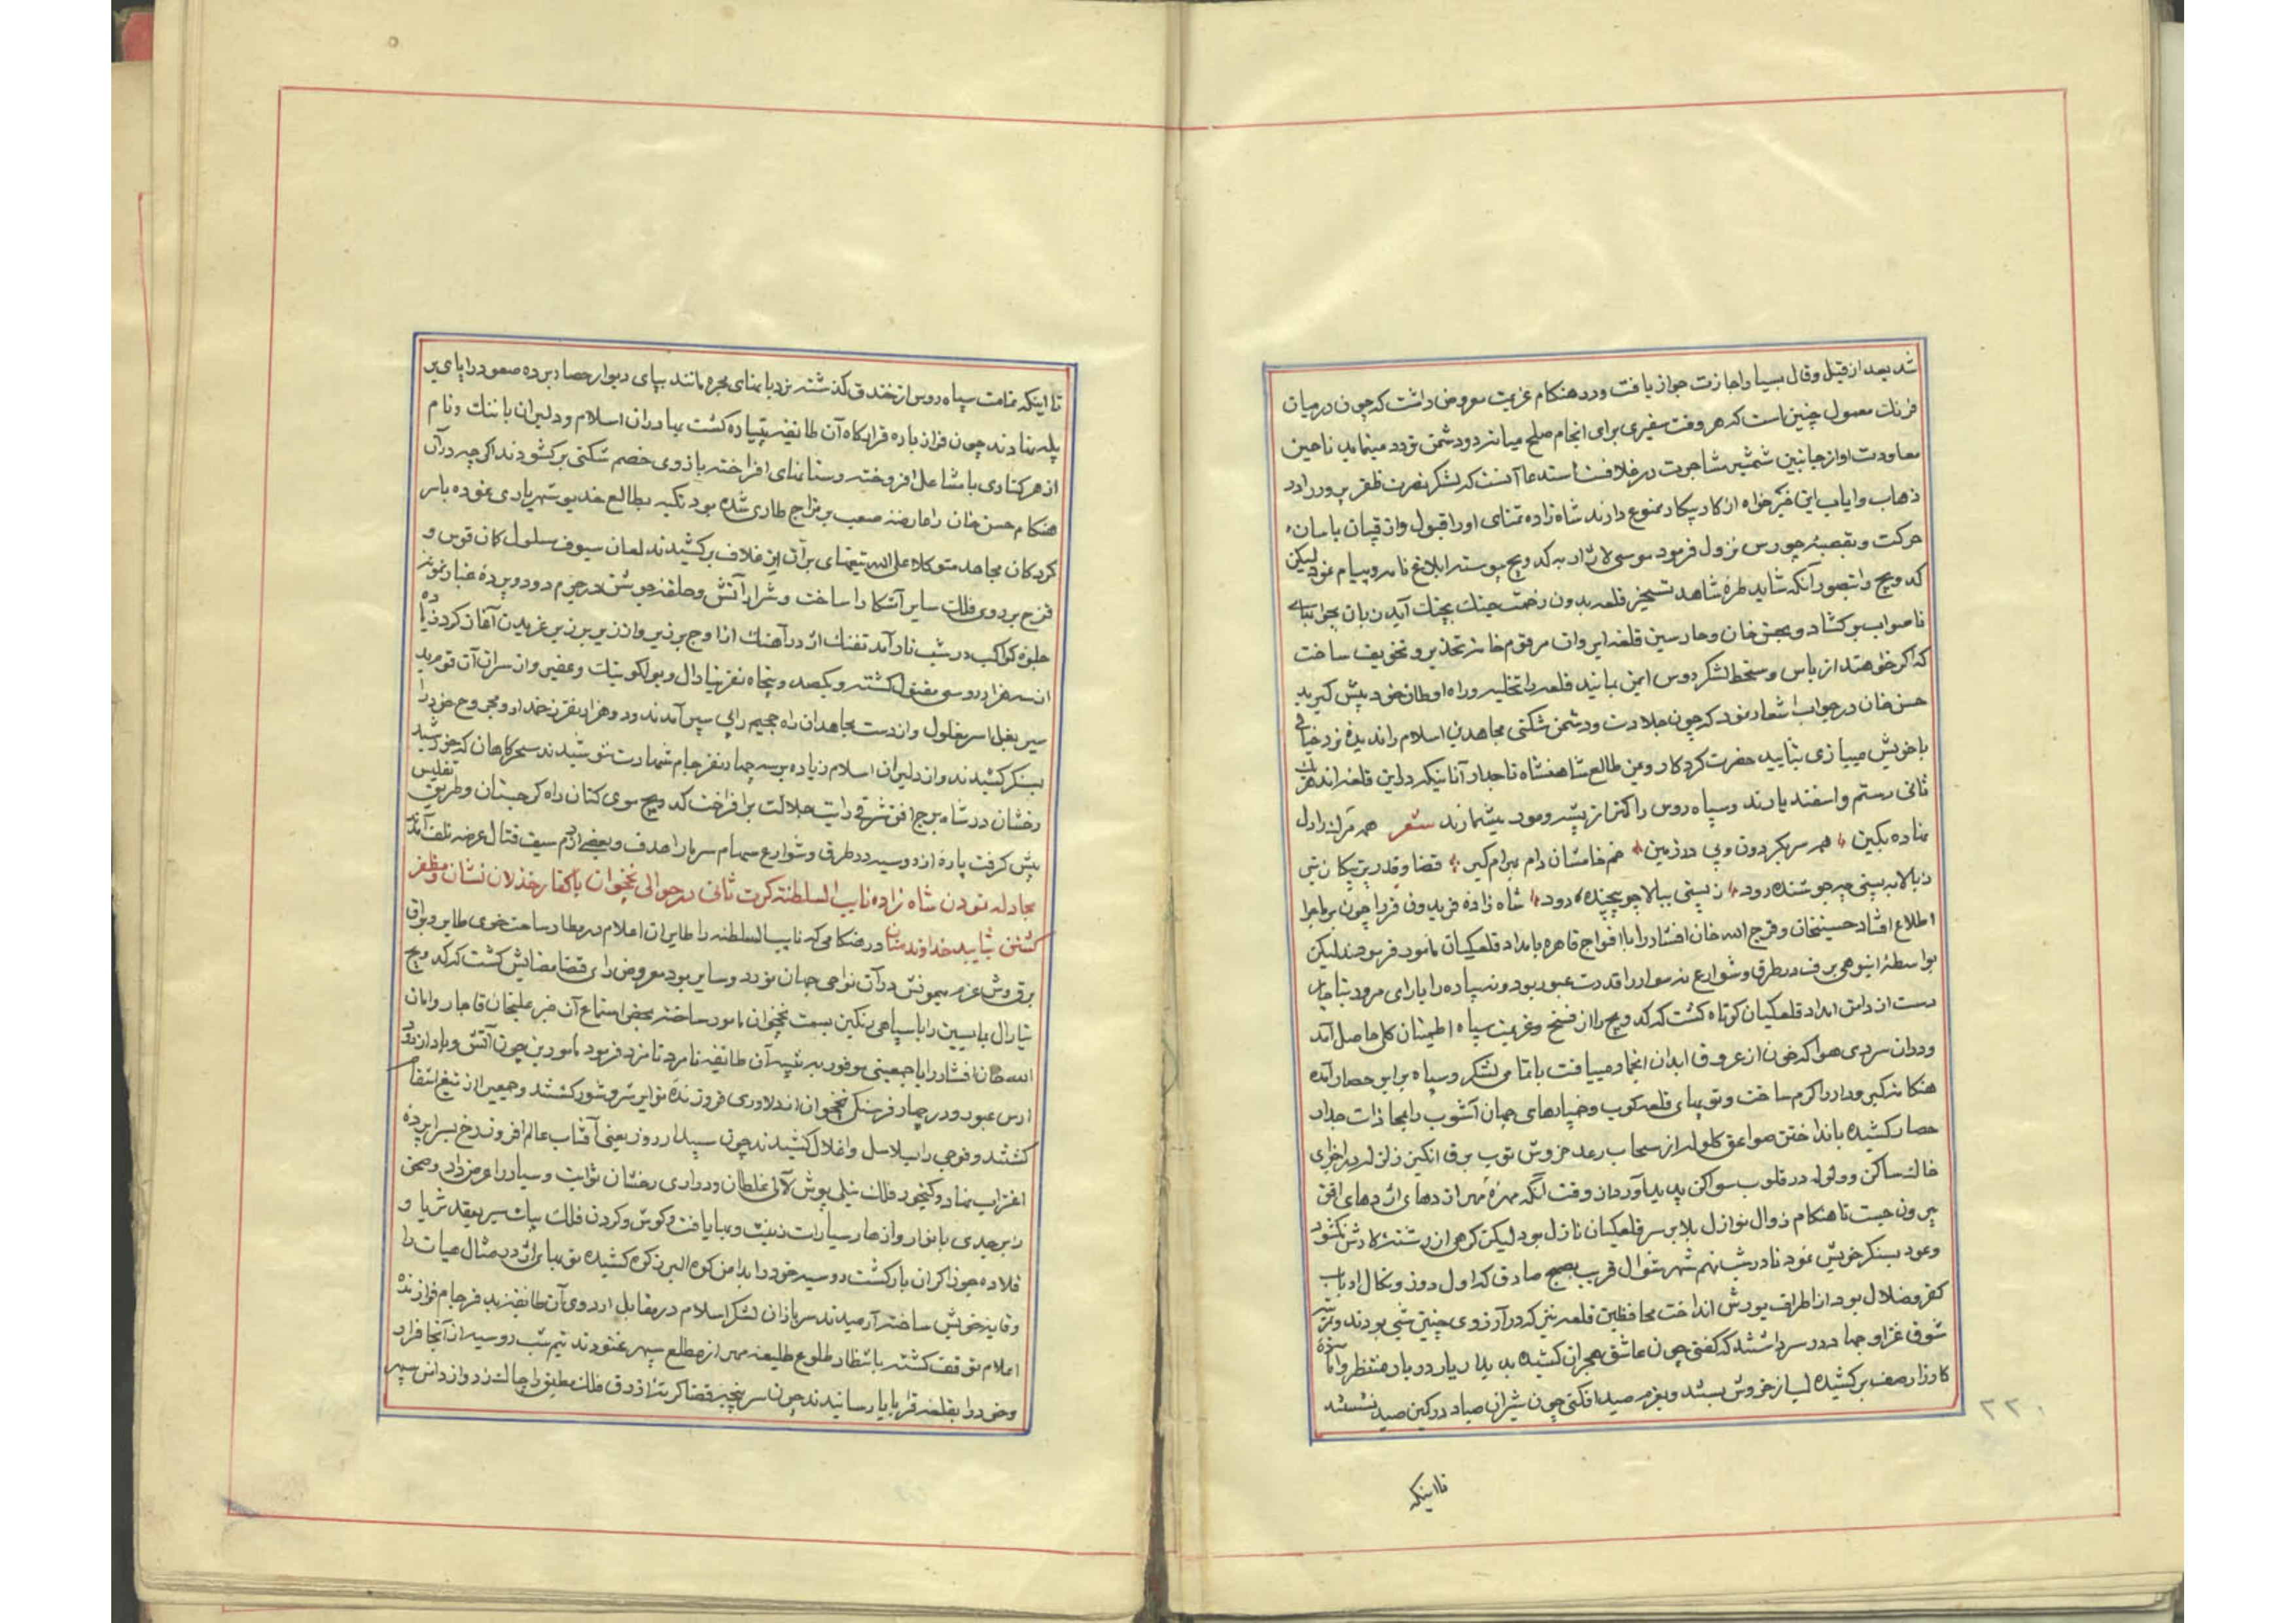 شد بعد از قیل و قال بسیار اجازت جواز یافت و در هنکام عزیمت معروض داشت که چون در میان
فرنك معمول چنین است که هر وقت سفیری برای انجام صلح میانه دو دشمن تردد مینماید تا حین
معاودت او از جانبین شمشیر مشاجرت در غلافست استدعا آنست که لشکر نصرت ظفر پرور را در
ذهاب و ایاب این خیرخواه از کار پیکار ممنوع دارند شاه زاده تمنای او را قبول و از قپان باسان
حرکت و بقصبه چورس نزول فرمود موسی لاژار به کدویچ پیوسته ابلاغ نامه و پیام نمود لیکن
کدویچ را تصور آنکه شاید طرۀ شاهد تسخیر قلعه بدون زحمت جنك بچنك آید زبان بجواب
ناصواب برکشاد و بحسن خان و حارسین قلعه ایروان مرقوم خامه تحذیر و تخویف ساخت
که اکر خواهند از باس و سخط لشکر روس ایمن بمانید قلعه را تخلیه و راه اوطان خود پیش کیرید
حسن خان در جواب اشعار نمود که چون جلادت و دشمن شکنی مجاهدین اسلام را ندیدۀ نرد خیالی
با خویش میبازی بتایید حضرت کردکار و یمن طالع شاهنشاه تاجدار آنانیکه در این قلعه اند هر یك
ثانی رستم و اسفندیارند و سپاه روس را کمتر از پشه و مور میشمارند شعر همه مرك را دل
نهاده بکین همه سر بکردون و پی در زمین خم خامشان دام بهرام کیر قضا و قدر پیکان تیر
ز بالا به پستی چو جوشنده رود ز پستی ببالا چو پیچنده دود شاه زادۀ فریدون فر را چون بر ماجرا
اطلاع افتاد حسینخان و فرج الله خان افشار را با افواج قاهره بامداد قلعکیان مامور فرمودند لیکن
بواسطۀ انبوهی برف در طرق و شوارع نه سوار را قدرت عبور بود و نه پیاده را یارای مرور بناچار
دست از دامن امداد قلعکیان کوتاه کشت که کدویچ را از فسخ عزیمت سپاه اطمینان کلی حاصل آمد
و در آن سردی هوا که خون از عروق ابدان انجماد مییافت با تمامی لشکر و سپاه برابر حصار آمده
هنکامه کیر و دار را کرم ساخت و توپهای قلعه کوب و خمپارهای جهان آشوب را بمحاذات جدار
حصار کشیده بانداختن صواعق کلوله از سحاب رعد خروش توپ برق انکیز زلزله در اجزای
خاك ساکن و ولوله در قلوب سواکن پدید آورد از وقت آنکه مهرۀ مهر از دهان اژدهای افق
بیرون جست تا هنکام زوال نوازل بلا بر سر قلعکیان نازل بود لیکن کرهی از رشته کارش نکشود
و عود بسنکر خویش نمود تا در شب نهم شهر شوال قریب بصبح صادق که اول روز و نکال ارباب
کفر و ضلال بود از اطراف یورش انداخت محافظین قلعه نیز که در آرزوی چنین شبی بودند و نیز
شوق غزا و جهاد در سر داشتند که کفتی چون عاشق هجران کشیده بدیدار یار در بار منتظر و آمادۀ
کارزار صف برکشیده لب از خروش بستند و بعزم صید افکنی چون شیران صیاد در کمین صید نشستند
۲۲۰
تا اینکه
تا اینکه تمامت سپاه روس از خندق کذشته نردبانهای مجره مانند بپای دیوار حصار برده صعود را پای بر
پله نهادند چون فراز باره قرارکاه آن طائفه پتیاره کشت بهادران اسلام و دلیران با ننك و نام
از هر کناری با مشاعل افروخته و سنانهای افراخته بازوی خصم شکنی برکشودند اکر چه در آن
هنکام حسن خان را عارضه صعب بر مزاج طاری شده بود تکیه بطالع خدیو شهریاری نموده با سر
کردکان مجاهد متوکلا علی الله تیغهای بران از غلاف برکشیدند لمعان سیوف مسلول کان قوس و
قزح بر روی فلك سایر آشکارا ساخت و شرار آتش و حلقه جوشن در جرم دود و پردۀ غبار نمونه
جلوۀ کواکب در شب تار آمد تفنك اژدر آهنك از اوج بر زیر و از زیر بر زبر غریدن آغاز کرد زیاده
از سه هزار روسی مقتول کشته و یکصد و پنجاه نفر نیارال و پولکونیك و عضی و از سران آن قوم پلید
سیر بغل اسر مغلول و از دست مجاهدان راه جحیم را پی سپر آمدند و دو هزار نفر زخدار و مجروح خود را
بسنکر کشیدند و از دلیران اسلام زیاده بر سه چهار نفر جام شهادت ننوشیدند سحرکاهان که خورشید
رخشان در شاه برج افق شرق رایت جلالت برافراخت کدویچ موی کنان راه کرجستان و طریق تفلیس
پیش کرفت پارۀ از روسیه در طرق و شوارع سهام سرما را هدف و بعضی از دم سیف قتال عرضه تلف آمدند
مجادله نمودن شاه زاده نایب السلطنه کرت ثانی در حوالی نخجوان با کفار خذلان نشان و مظفر
کشتن بتایید خداوند منان در هنکامی که نایب السلطنه را طایران اعلام در مطار ساحت خوی طایر و براق
برق وش عزم همیونش در آن نواحی جهان نورد و سایر بود معروض رای قضا مضایش کشت که کدویچ
نیارال با یسین را با سپاهی سنکین بسمت نخجوان مامور ساخته بمحض استماع آن خبر علیخان قاجار و امان
الله خان افشار را با جمعیتی موفور به تنبیه آن طائفه نامرد نامزد فرمود مامورین چون آتش و باد از رود
ارس عبور و در چهار فرسنکی نخجوان از دلاوری فروزندۀ نوایر شر و شور کشتند و جمعی را از تیغ انتقام
کشتند و فوجی را بسلاسل و اغلال کشیدند چون سپیدار روز یعنی آفتاب عالم افروز رخ بسراپردۀ
اغتراب نهاد و کیخور فلك نیلی پوش لآلی غلطان و دراری رخشان ثوابت و سیار را عرض داد و صحن
زبرجدی بانوار و ازهار سیارات زینت و بها یافت و کوش و کردن فلك بیات سیر بعقد ثریا و
قلاده جوزا کران بار کشت روسیه خود را بدامن کوه البرز کره کشیده توپهای اژدر مثال حیات را
وقایه خویش ساخته آرمیدند سربازان لشکر اسلام در مقابل اردوی آن طائفه بد فرجام فرازندۀ
اعلام توقف کشته بانتظار طلوع طلیعه مهر از مطلع سپهر غنودند نیم شب روسیه از آنجا فرار
و خود را بقلعه قرابابا رسانیدند چون سر پنجه قضا کریبان زورق فلك مطبق را چاك زد و از دامن سپهر